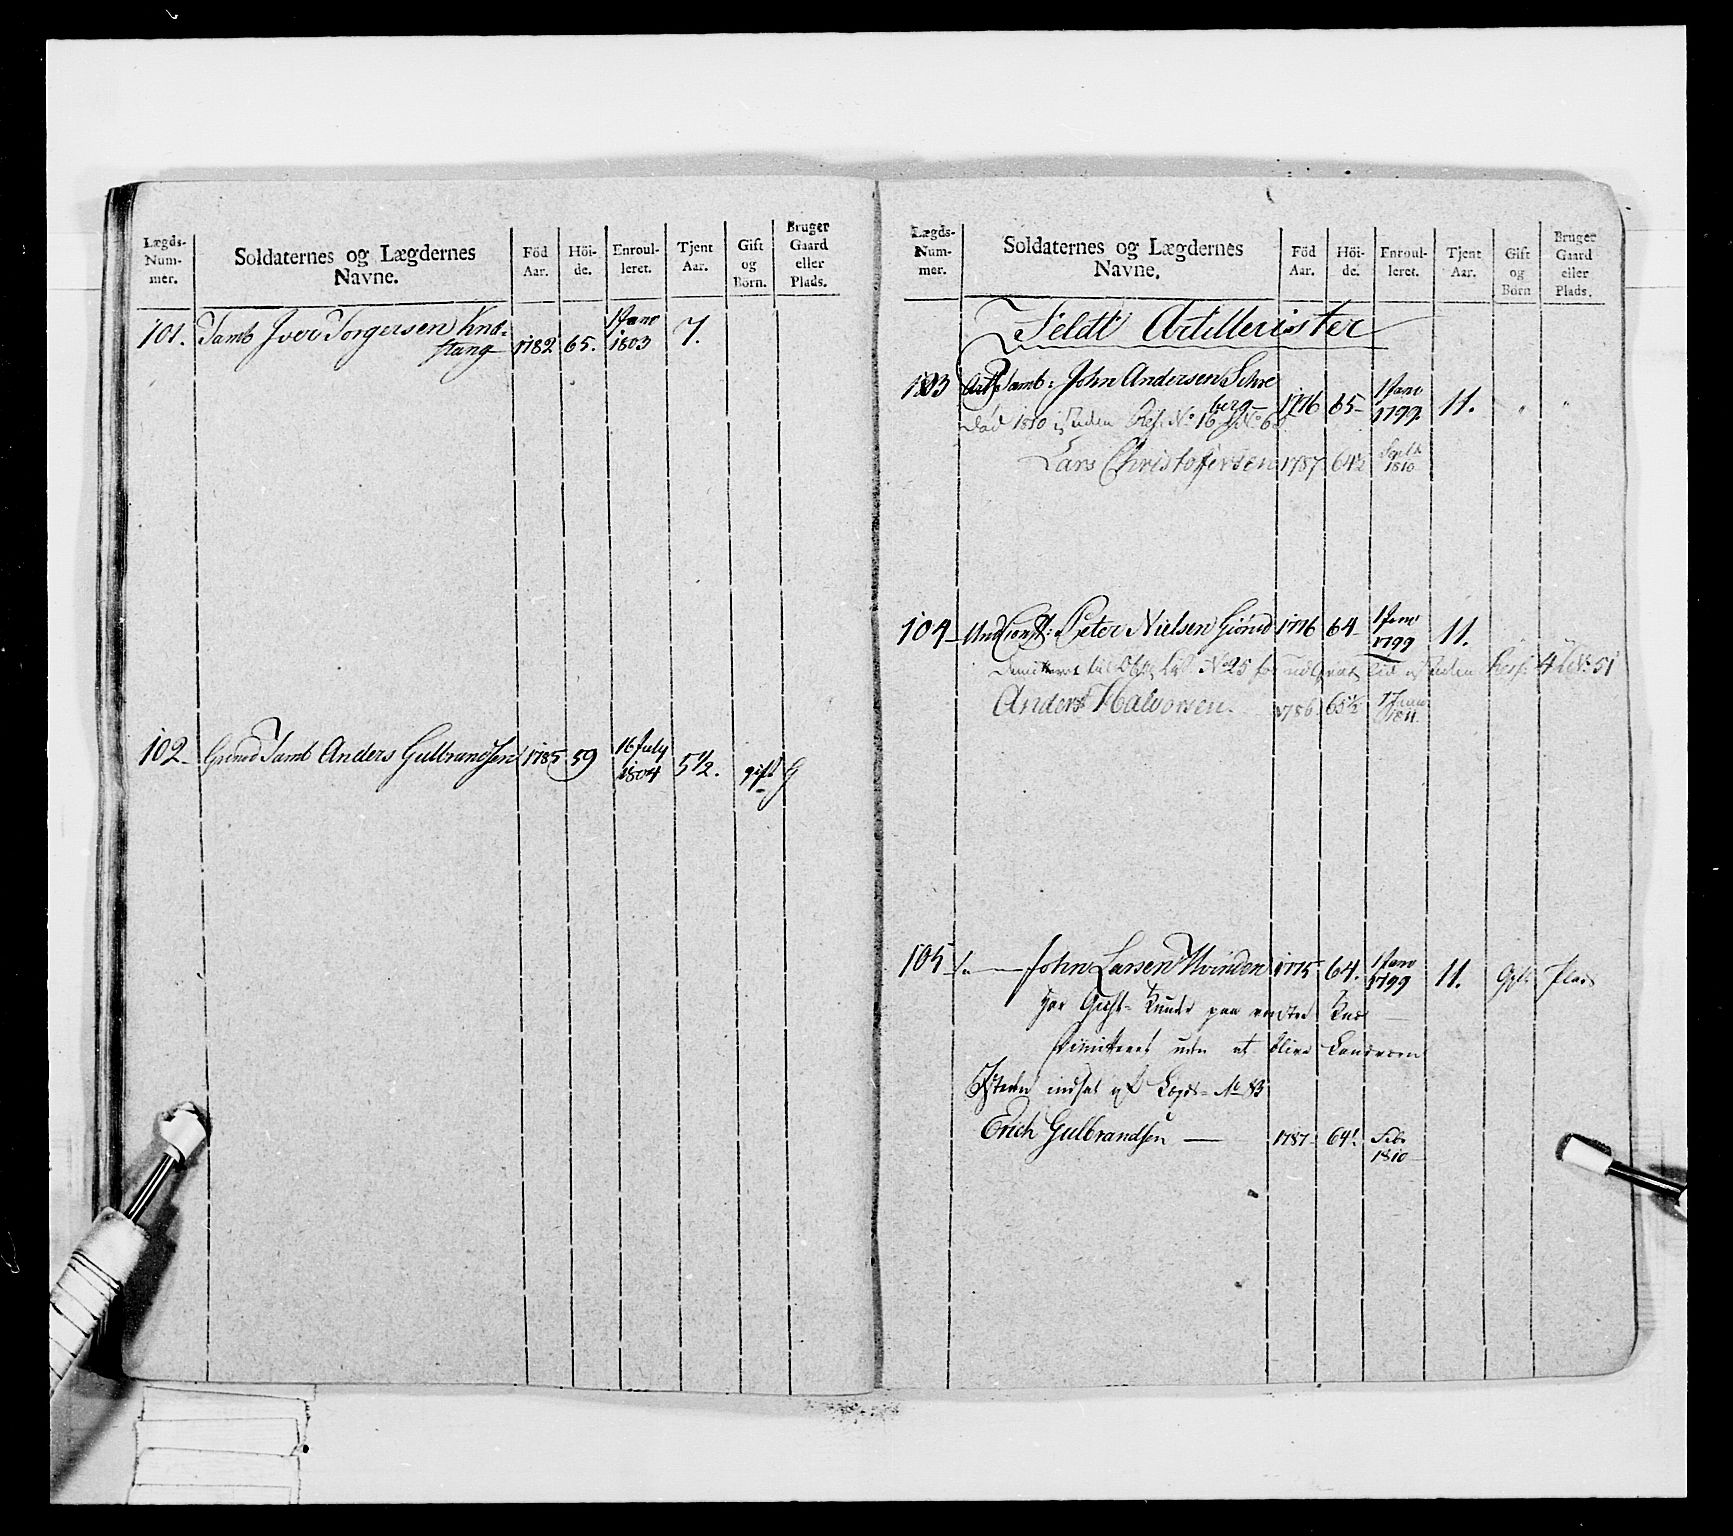 Lægds-
Num-
mer.
Soldaternes og Lægdernes
Navne.
Föd
Aar.
Höi-
de.
Enroul-
leret.
Tjent
Aar.
Gift
og
Börn.
Bruger
Gaard
eller
Plads.
101. Tamb Iver Torgersen Kna-
stang 1782 65. 1 Janv 1803 7.
102 Tamb Anders Gulbrandsen 1785 59 16 July 1804 5 1/2. gift G
Lægds-
Num-
mer.
Soldaternes og Lægdernes
Navne.
Föd
Aar.
Höi-
de.
Enroul-
leret.
Tjent
Aar.
Gift
og
Börn
Bruger
Gaard
eller
Plads.
Feldt Artillerister
103 Tamb: John Andersen Schre
berg 1776 65 1 Janv 1799 11. " "
Död 1810 No 16
Lars Christofersen 1787 64½ 1810
104 Und Const: Peter Nielsen 1776 64 1 Janv 1799 11.
til No 25 No 51
Anders Halvorsen. 1786 65½ 1 Janv 1811
105 John Larsen Hvinden 1775 64. 1 Janv 1799 11. Gift Plads
har paa
Dimitteret uden at blive Landvern
indsat af Lægds No 83
Erich Gulbrandsen 1787 64½ Febr
1810